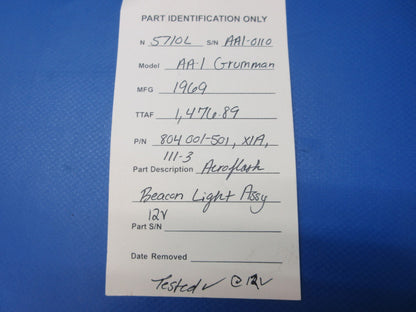 PART IDENTIFICATION ONLY
N 5710L S/N AA1-0110
Model AA-1 Grumman
MFG 1969
TTAF 1,476.89
P/N 804001-501, X1A,
111-3
Part Description Aeroflash
Beacon Light Assy
12V
Part S/N
Date Removed
Tested ✓ @ 12V